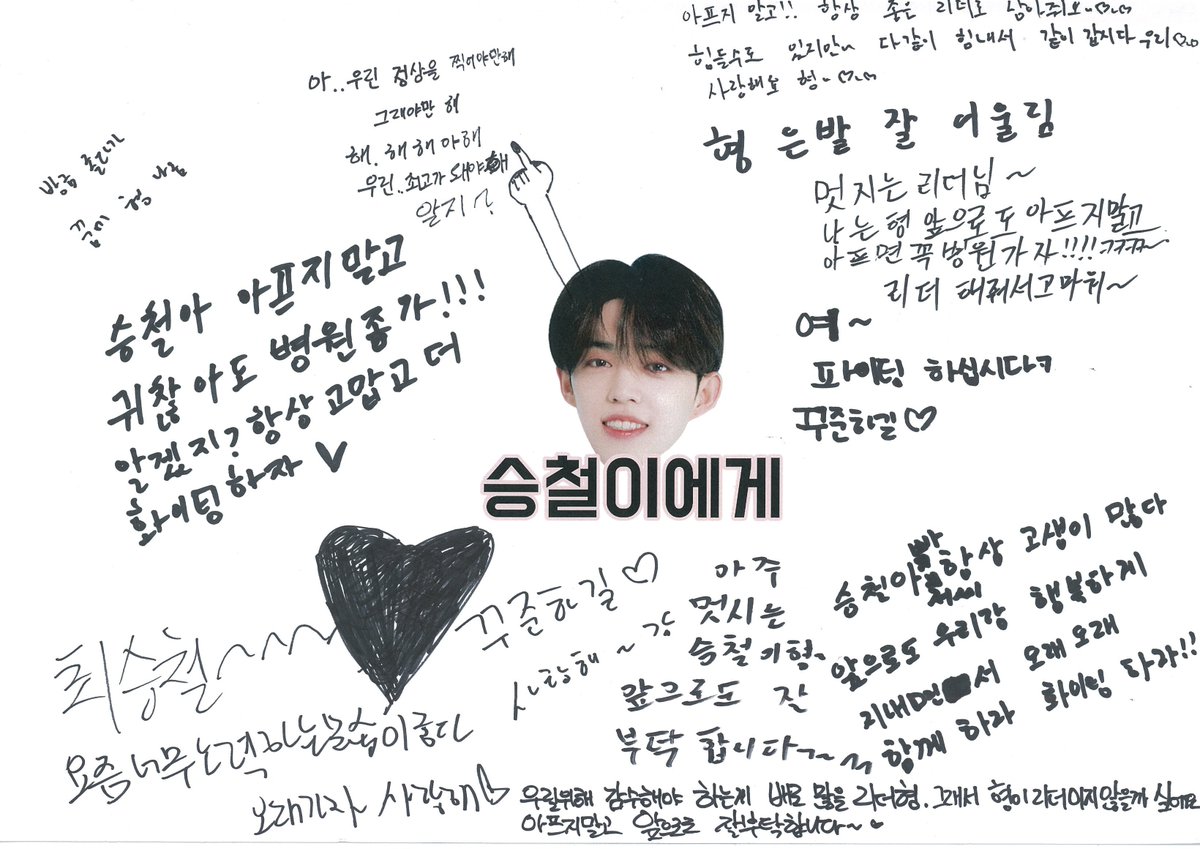 아프지 말고!! 항상 좋은 리더로 남아줘요~♡
힘들수도 있지만 다같이 힘내서 같이 갑시다 우리♡
사랑해요 형~♡
아..우린 정상을 찍어야만해
그래야만 해
해. 해 해 야 해
우린..최고가 돼야 해
알지?
방금 졸리기
꾸미 형 바금
형 은발 잘 어울림
멋지는 리더님~
나는 형 앞으로도 아프지말고
아프면 꼭 병원가자!!!! ㅋㅋㅋ
리더 해줘서고마워~
승철아 아프지말고
귀찮아도 병원좀가!!!
알겠지? 항상 고맙고 더
화이팅하자 ♥
여~
파이팅 하십시다ㅋ
꾸준하길♡
승철이에게
최승철~~~
요즘 너무 노력하는 모습이 좋다
오래가자 사랑해
꾸준하길♡
사랑해~
아주
멋시는
승철이형~
앞으로도 잘
부탁 합니다~~
승철아 항상 고생이 많다
앞으로도 우리랑 행복하게
지내면서 오래오래
함께 하자 화이팅 하자!!
우릴위해 감수해야 하는게 많을 리더형. 그래서 형이 리더이지않을까 싶어요
아프지말고 앞으로도 잘부탁합니다~